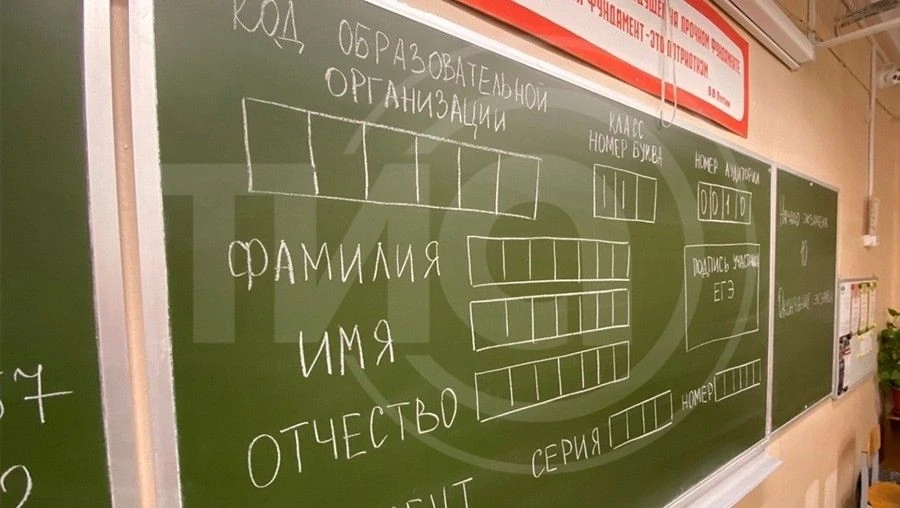 НА ПРОЧНОМ ФУНДАМЕНТЕ
ФУНДАМЕНТ-ЭТО ПАТРИОТИЗМ
В.В.Путин
КОД ОБРАЗОВАТЕЛЬНОЙ
ОРГАНИЗАЦИИ
КЛАСС
НОМЕР БУКВА
11
НОМЕР АУДИТОРИИ
0010
ФАМИЛИЯ
ИМЯ
ОТЧЕСТВО
ПОДПИСЬ УЧАСТНИКА
ЕГЭ
СЕРИЯ
НОМЕР
НАЧАЛО ЭКЗАМЕНА
10
ОКОНЧАНИЕ ЭКЗАМЕНА
57
2
ТИА